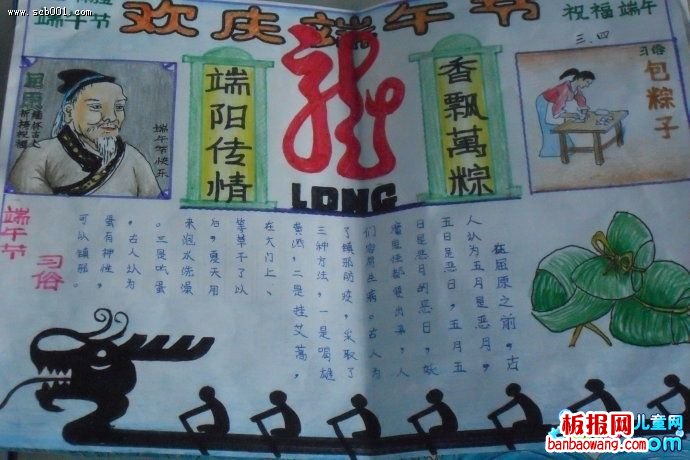 www.scb001.com
端午节
欢庆端午节
祝福端午
三.四
端阳传情
龙
LONG
香飘萬粽
习俗
包粽子
端午节快乐
在屈原之前，古
人认为五月是恶月，
五日是恶日，五月五
日是恶月的恶日，妖
们容易生病。古人为
了镇邪防疫，采取了
三种方法，一是喝雄
黄酒，二是挂艾蒿，
在大门上、
等草干了以
后，夏天用
来泡水洗澡
。三是吃蛋
，古人认为
蛋有神性，
可以镇邪。
端午节
习俗
板报网
儿童网
banbaowang.com